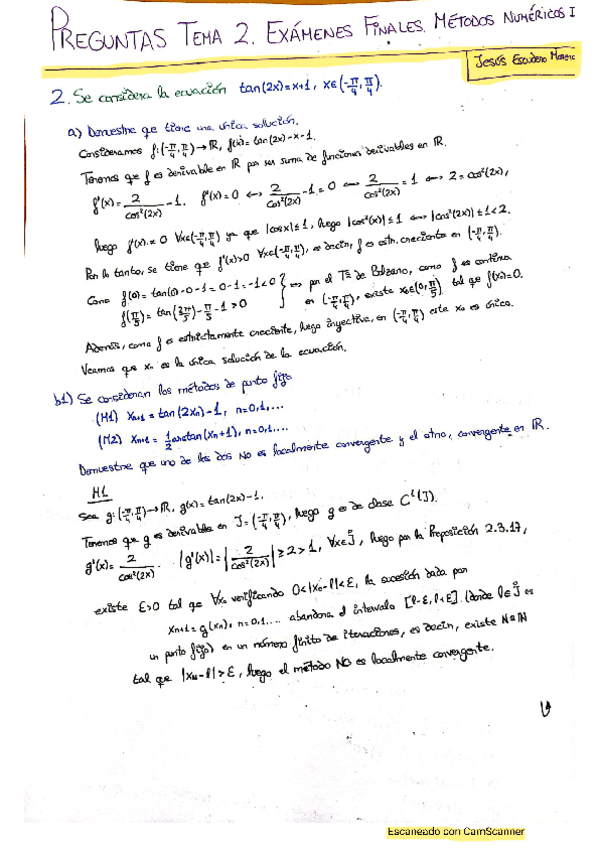 PREGUNTAS TEMA 2. EXÁMENES FINALES. MÉTODOS NUMÉRICOS I
Jesús Escudero Moreno
2. Se considera la ecuación tan(2x)=x+1, x∈(-π/4, π/4).
a) Demuestre que tiene una única solución.
Consideramos f:(-π/4, π/4)→ℝ, f(x)=tan(2x)-x-1.
Tenemos que f es derivable en ℝ por ser suma de funciones derivables en ℝ.
f'(x)= 2/cos²(2x) -1. f'(x)=0 ⟺ 2/cos²(2x) -1=0 ⟺ 2/cos²(2x) =1 ⟺ 2=cos²(2x),
luego f'(x)≠0 ∀x∈(-π/4, π/4) ya que |cosx|≤1, luego |cos²(x)|≤1 ⟺ |cos²(2x)|≤1<2.
Por lo tanto, se tiene que f'(x)>0 ∀x∈(-π/4, π/4), es decir, f es estr. creciente en (-π/4, π/4).
Como f(0)=tan(0)-0-1=0-1=-1<0
f(π/5)=tan(2π/5)-π/5-1>0 } ⟹ por el Tª de Bolzano, como f es continua
en (-π/4, π/4), existe x₀∈(0, π/5) tal que f(x₀)=0.
Además, como f es estrictamente creciente, luego inyectiva, en (-π/4, π/4) este x₀ es único.
Veamos que x₀ es la única solución de la ecuación.
b1) Se consideran los métodos de punto fijo
(M1) xₙ₊₁=tan(2xₙ)-1, n=0,1,...
(M2) xₙ₊₁=1/2 arctan(xₙ+1), n=0,1,...
Demuestre que uno de los dos NO es localmente convergente y el otro, convergente en ℝ.
M1
Sea g:(-π/4, π/4)→ℝ, g(x)=tan(2x)-1.
Tenemos que g es derivable en J=(-π/4, π/4), luego g es de clase C¹(J).
g'(x)= 2/cos²(2x). |g'(x)|=|2/cos²(2x)|≥2>1, ∀x∈J̊, luego por la Proposición 2.3.17,
existe ε>0 tal que ∀x₀ verificando 0<|x₀-l|<ε, la sucesión dada por
xₙ₊₁=g(xₙ), n=0,1,... abandona el intervalo [l-ε, l+ε] (donde l∈J̊ es
un punto fijo) en un número finito de iteraciones, es decir, existe N∈ℕ
tal que |x_N-l|>ε, luego el método NO es localmente convergente.
Escaneado con CamScanner